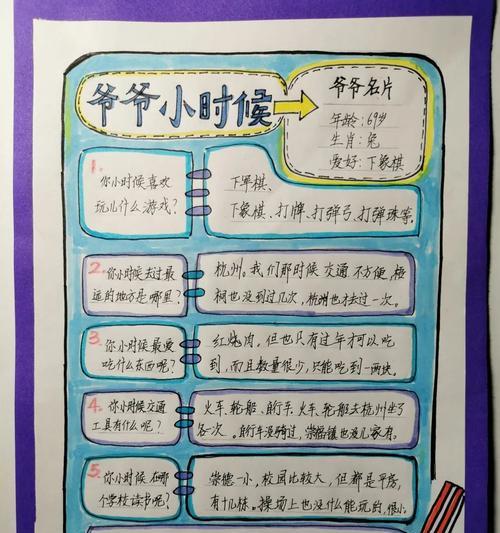 爷爷小时候
爷爷名片
年龄:69岁
生肖:兔
爱好:下象棋
1.
你小时候喜欢
玩儿什么游戏?
下军棋、
下象棋、打牌、打弹弓、打弹珠等。
2.
你小时候去过最
远的地方是哪里?
杭州。我们那时候交通不方便,桐
也没到过几次,杭州也才去过一次。
3.
你小时候最爱
吃什么东西呢?
红烧肉。但也只有过年才可以吃
到,而且数量很少,只能吃到一两块。
4.
你小时候交通
工具有什么呢?
火车、轮船、自行车、火车、轮船去杭州坐了
各一次。自行车没骑过,崇福镇也没几家有。
5.
你小时候在哪
个学校读书呢?
崇德一小,校园比较大,但都是平房,
有十几栋。操场上也没什么能玩的,很小